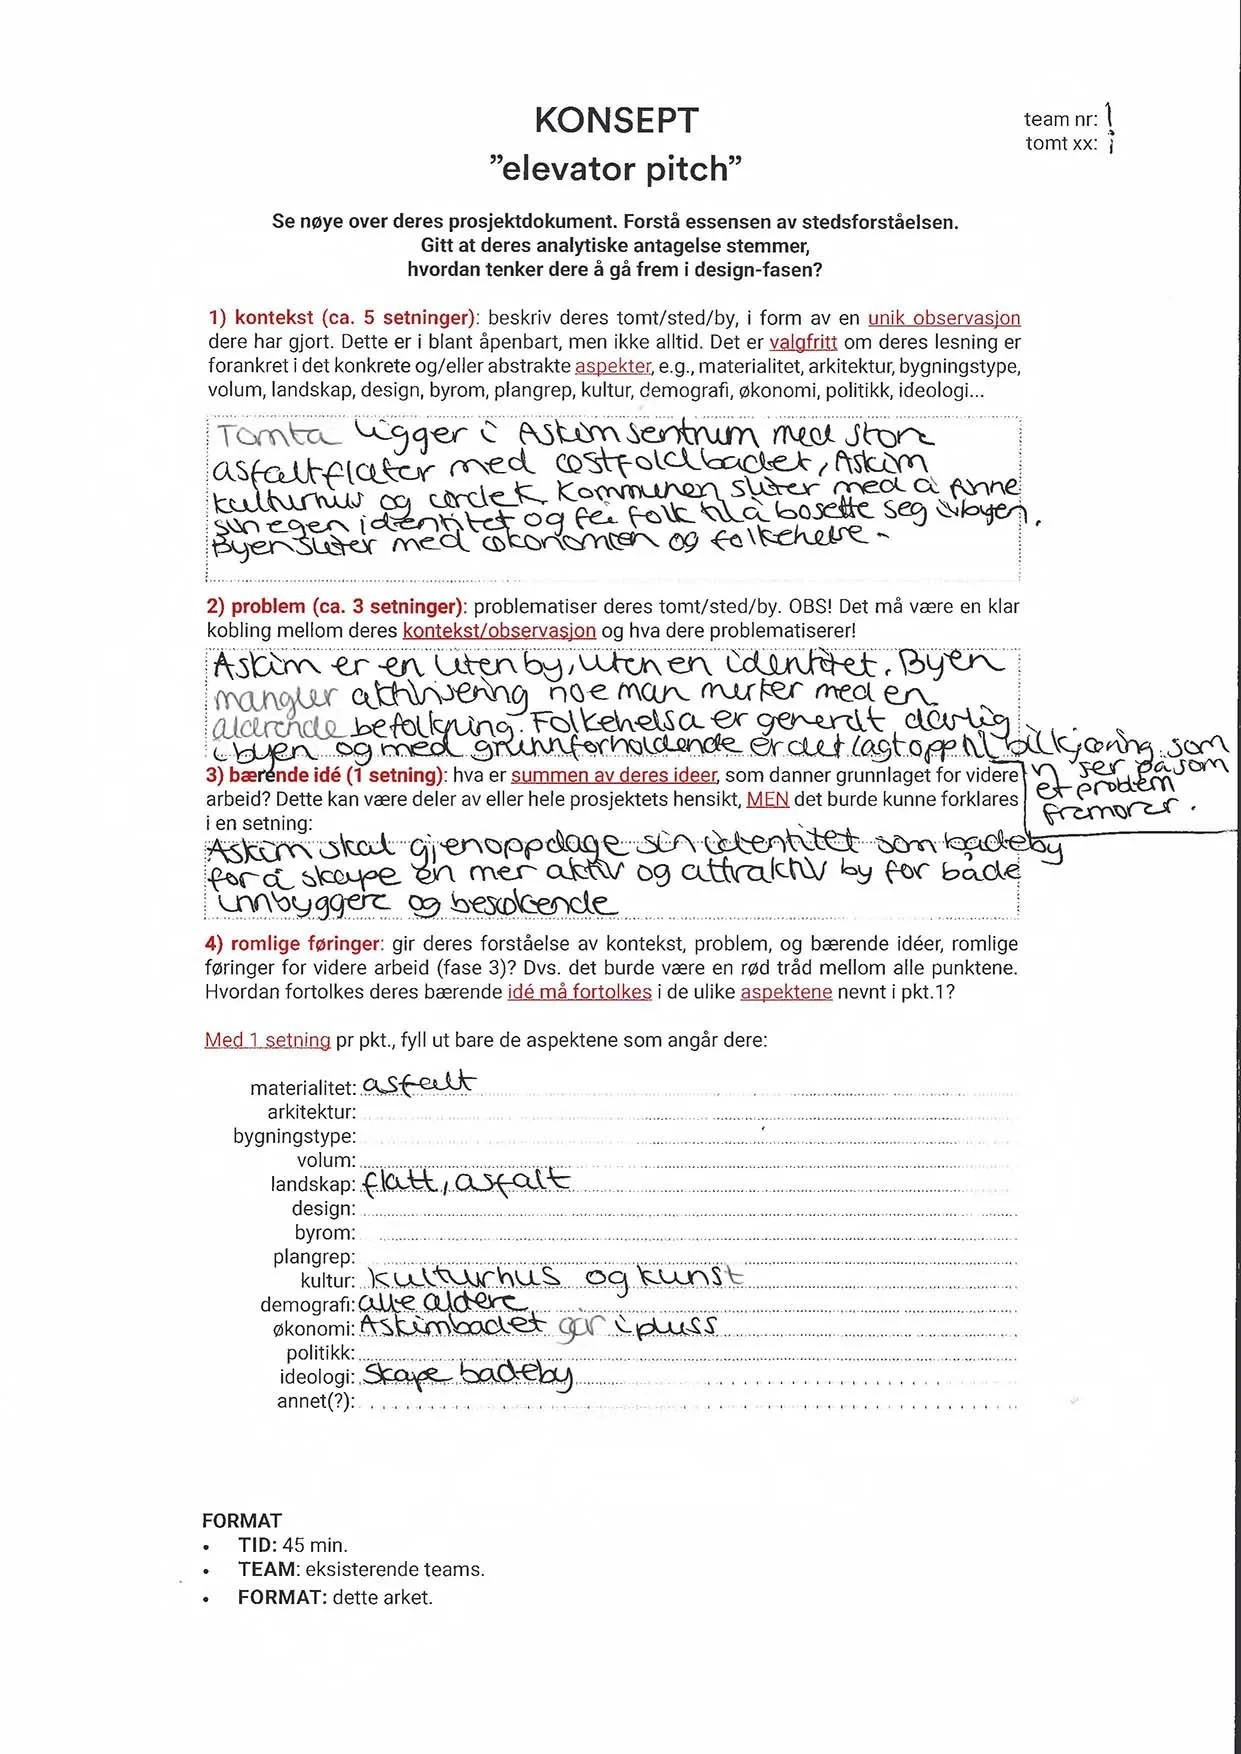 KONSEPT
"elevator pitch"
team nr: 1
tomt xx: i
Se nøye over deres prosjektdokument. Forstå essensen av stedsforståelsen.
Gitt at deres analytiske antagelse stemmer,
hvordan tenker dere å gå frem i design-fasen?
1) kontekst (ca. 5 setninger): beskriv deres tomt/sted/by, i form av en unik observasjon
dere har gjort. Dette er i blant åpenbart, men ikke alltid. Det er valgfritt om deres lesning er
forankret i det konkrete og/eller abstrakte aspekter, e.g., materialitet, arkitektur, bygningstype,
volum, landskap, design, byrom, plangrep, kultur, demografi, økonomi, politikk, ideologi...
Tomta ligger i Askim sentrum med store
asfaltflater med østfoldbadet, Askim
kulturhus og cirdek. Kommunen sliter med å finne
sin egen identitet og få folk til å bosette seg i byen.
Byen sliter med økonomien og folkehelse -
2) problem (ca. 3 setninger): problematiser deres tomt/sted/by. OBS! Det må være en klar
kobling mellom deres kontekst/observasjon og hva dere problematiserer!
Askim er en liten by, uten en identitet. Byen
mangler aktivisering noe man merker med en
aldrende befolkning. Folkehelsa er generelt dårlig
i byen og med grunnforholdende er det lagt opp til bilkjøring som
vi ser på som
et problem
fremover.
3) bærende idé (1 setning): hva er summen av deres ideer, som danner grunnlaget for videre
arbeid? Dette kan være deler av eller hele prosjektets hensikt, MEN det burde kunne forklares
i en setning:
Askim skal gjenoppdage sin identitet som badeby
for å skape en mer aktiv og attraktiv by for både
innbyggere og besøkende
4) romlige føringer: gir deres forståelse av kontekst, problem, og bærende idéer, romlige
føringer for videre arbeid (fase 3)? Dvs. det burde være en rød tråd mellom alle punktene.
Hvordan fortolkes deres bærende idé må fortolkes i de ulike aspektene nevnt i pkt.1?
Med 1 setning pr pkt., fyll ut bare de aspektene som angår dere:
materialitet: asfalt
arkitektur:
bygningstype:
volum:
landskap: flatt, asfalt
design:
byrom:
plangrep:
kultur: kulturhus og kunst
demografi: alle aldere
økonomi: Askimbadet går i pluss
politikk:
ideologi: Skape badeby
annet(?):
FORMAT
• TID: 45 min.
• TEAM: eksisterende teams.
• FORMAT: dette arket.